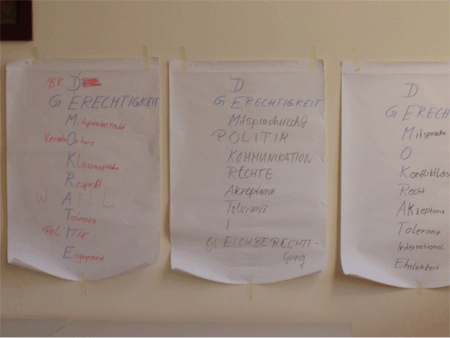 BR D
GERECHTIGKEIT
Mitspracherecht
O
K
Respekt
WAHL
Toleranz
POLITIK
Engagement
D
GERECHTIGKEIT
Mitspracherecht
POLITIK
KOMMUNIKATION
RECHTE
AKzeptanz
Toleranz
I
GLEICHBERECHTI-
GUNG
D
GERECH
Mitsprache
O
Konfliktlös
Recht
AKzeptanz
Toleranz
International
Ehrlichkeit